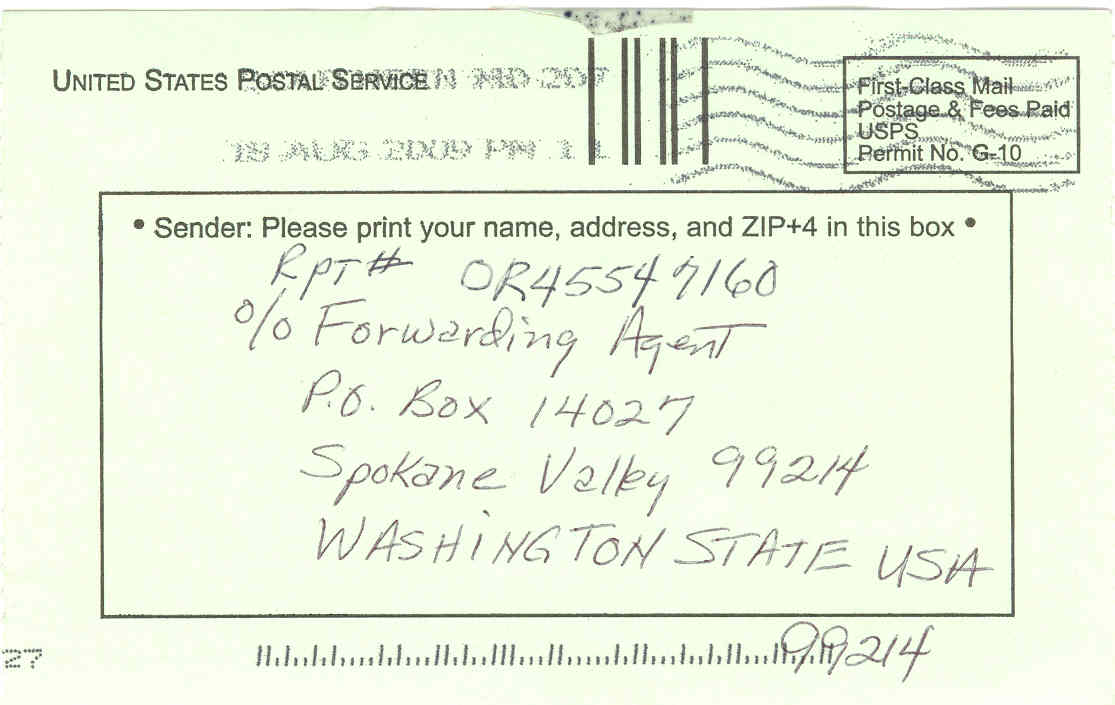 UNITED STATES POSTAL SERVICE
MD 207
18 AUG 2009 PM 1 L
First-Class Mail
Postage & Fees Paid
USPS
Permit No. G-10
• Sender: Please print your name, address, and ZIP+4 in this box •
RPT# OR45547160
% Forwarding Agent
P.O. Box 14027
Spokane Valley 99214
WASHINGTON STATE USA
99214
27